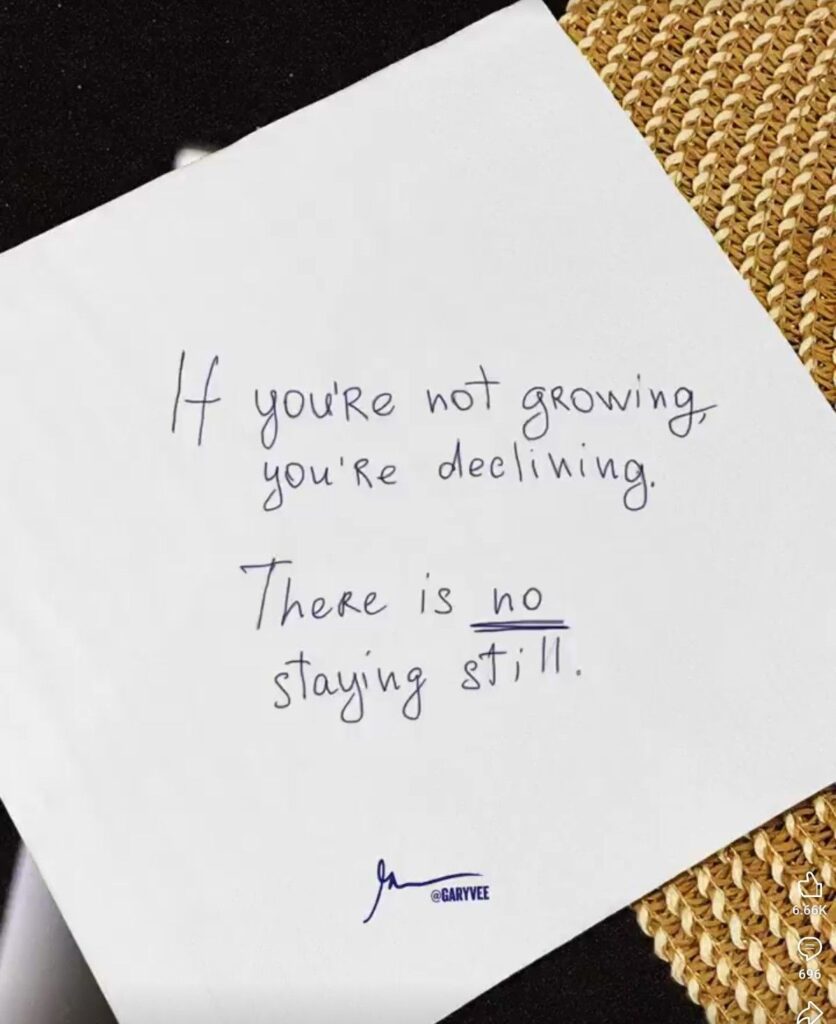 If you're not growing,
you're declining.
There is no
staying still.
@GARYVEE
6.66K
696